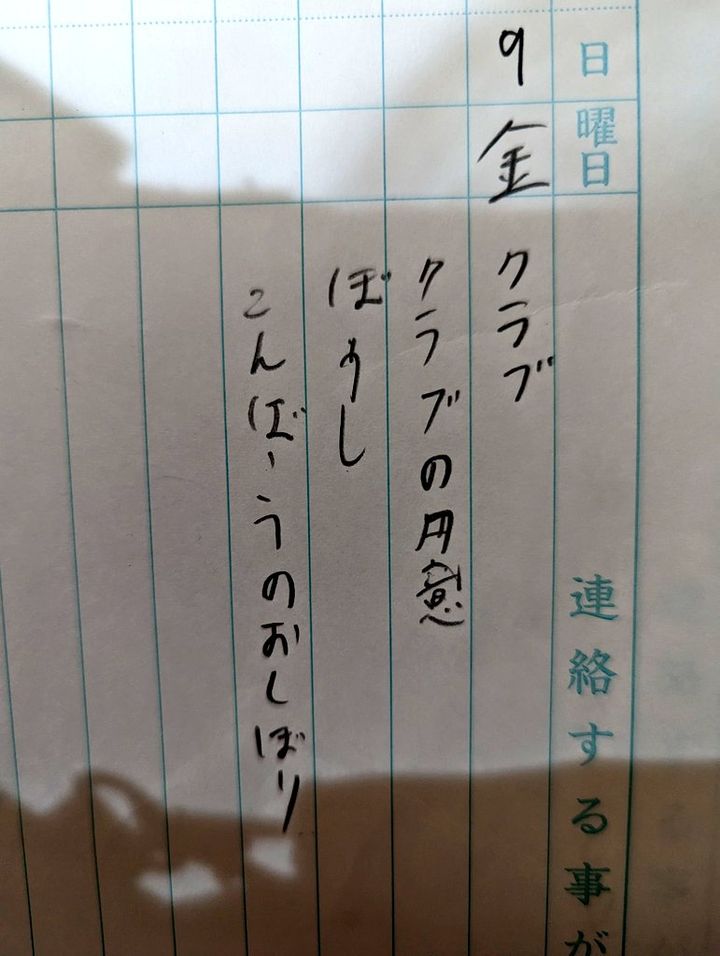 日 曜日 連絡する事が
9 金 クラブ
クラブの用意
ぼうし
こんぼうのおしぼり